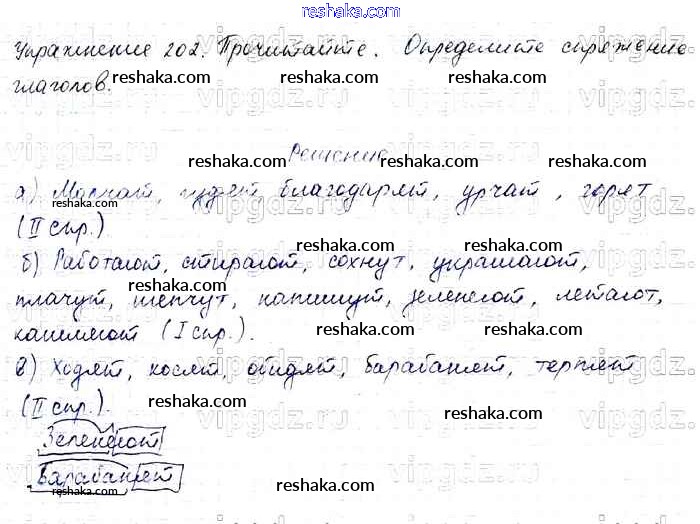 reshaka.com
Упражнение 202. Прочитайте. Определите спряжение
глаголов.
Решение
а) Молчат, гудят, благодарят, урчат, горят
(II спр.)
б) Работают, стирают, сохнут, украшают,
плачут, шепчут, напишут, зеленеют, летают,
кашляют (I спр.).
в) Ходят, косят, обидят, барабанят, терпят
(II спр.).
Зеленеют
Барабанят